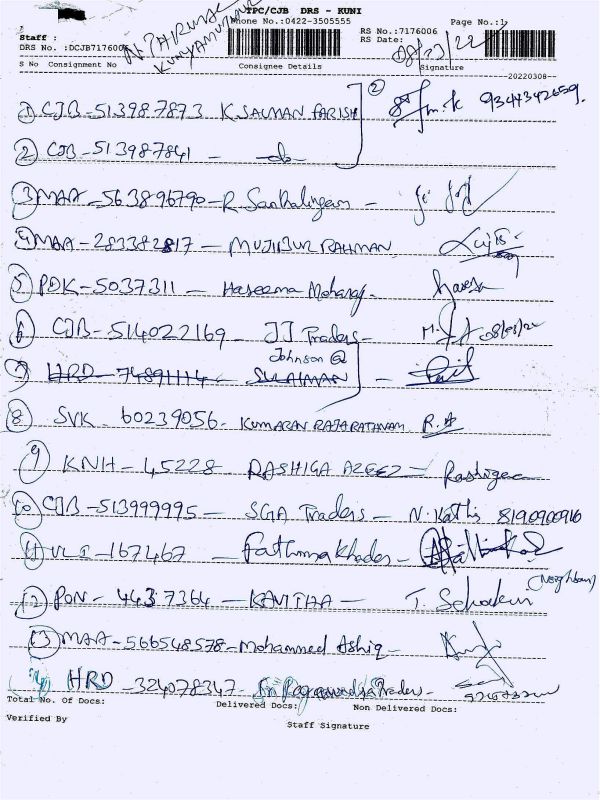 TPC/CJB DRS - KUNI
Phone No.:0422-3505555 Page No.:1
Staff : RS No.:7176006
DRS No. :DCJB7176006 RS Date: 08/03/22
N. THIRUMAL
KUNIYAMUTHUR
S No Consignment No Consignee Details Signature
--20220308--
① CJB -513987873 K SALMAN FARISH ② m.k 9344342659.
② CJB -513987841 - -do-
③ MAA -563896790-R. Sankalingam -
④ MAA -283382817 - MUJIBUR RAHMAN
⑤ PDK -5037311 - Haseena Mohanaj-
⑥ CJB -514022169 - JJ Traders- 08/03/22
Johnson @
⑦ HRD - 74891114 - SULAIMAN -
⑧ SVK - 60239056- KUMARAN RAJARATHNAM R.
⑨ KNH -45228 RASHIGA AZEEZ - Rashiga
⑩ CJB -513999995 - SGA Traders - N. Kathi 8190900910
⑪ VLI -167467 - Fathima Khader -
(Neighbour)
⑫ PON - 4437364 - KAVITHA - T.
⑬ MAA -566548578-Mohammed Ashiq-
⑭ HRD -324078347- Sri Traders-
Total No. Of Docs: Delivered Docs: Non Delivered Docs:
Verified By Staff Signature